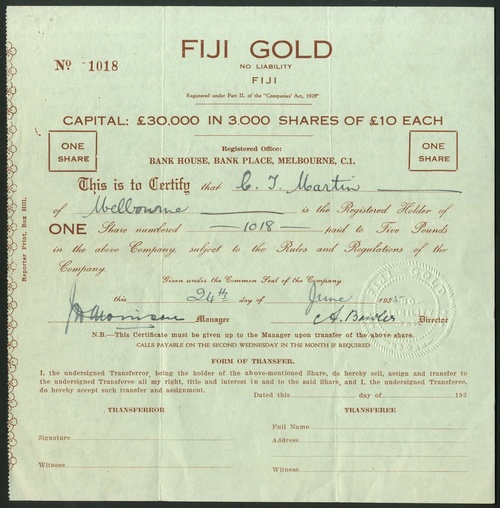 FIJI GOLD
NO LIABILITY
FIJI
Nº 1018
Registered under Part II. of the "Companies' Act, 1928"
CAPITAL: £30,000 IN 3,000 SHARES OF £10 EACH
ONE SHARE
ONE SHARE
Registered Office:
BANK HOUSE, BANK PLACE, MELBOURNE, C.1.
This is to Certify that C. J. Martin
of Melbourne is the Registered Holder of
ONE Share numbered 1018 paid to Five Pounds
in the above Company, subject to the Rules and Regulations of the
Company.
Given under the Common Seal of the Company
this 24th day of June 193
Manager Director
N.B.—This Certificate must be given up to the Manager upon transfer of the above share.
CALLS PAYABLE ON THE SECOND WEDNESDAY IN THE MONTH IS REQUIRED
FORM OF TRANSFER.
I, the undersigned Transferror, being the holder of the above-mentioned Share, do hereby sell, assign and transfer to
the undersigned Transferee all my right, title and interest in and to the said Share, and I, the undersigned, Transferee,
do hereby accept such transfer and assignment.
Dated this day of 193
TRANSFERROR TRANSFEREE
Full Name
Signature Address
Witness
Witness
Reporter Print, Box Hill.
FIJI GOLD